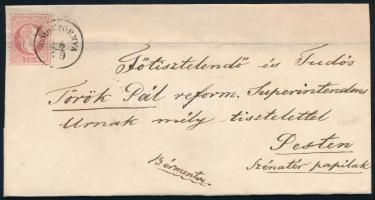 Főtisztelendő és Tudós
Török Pál reform. Superintendens
Urnak mély tisztelettel
Pesten
Bérmentve Szénatér papilak